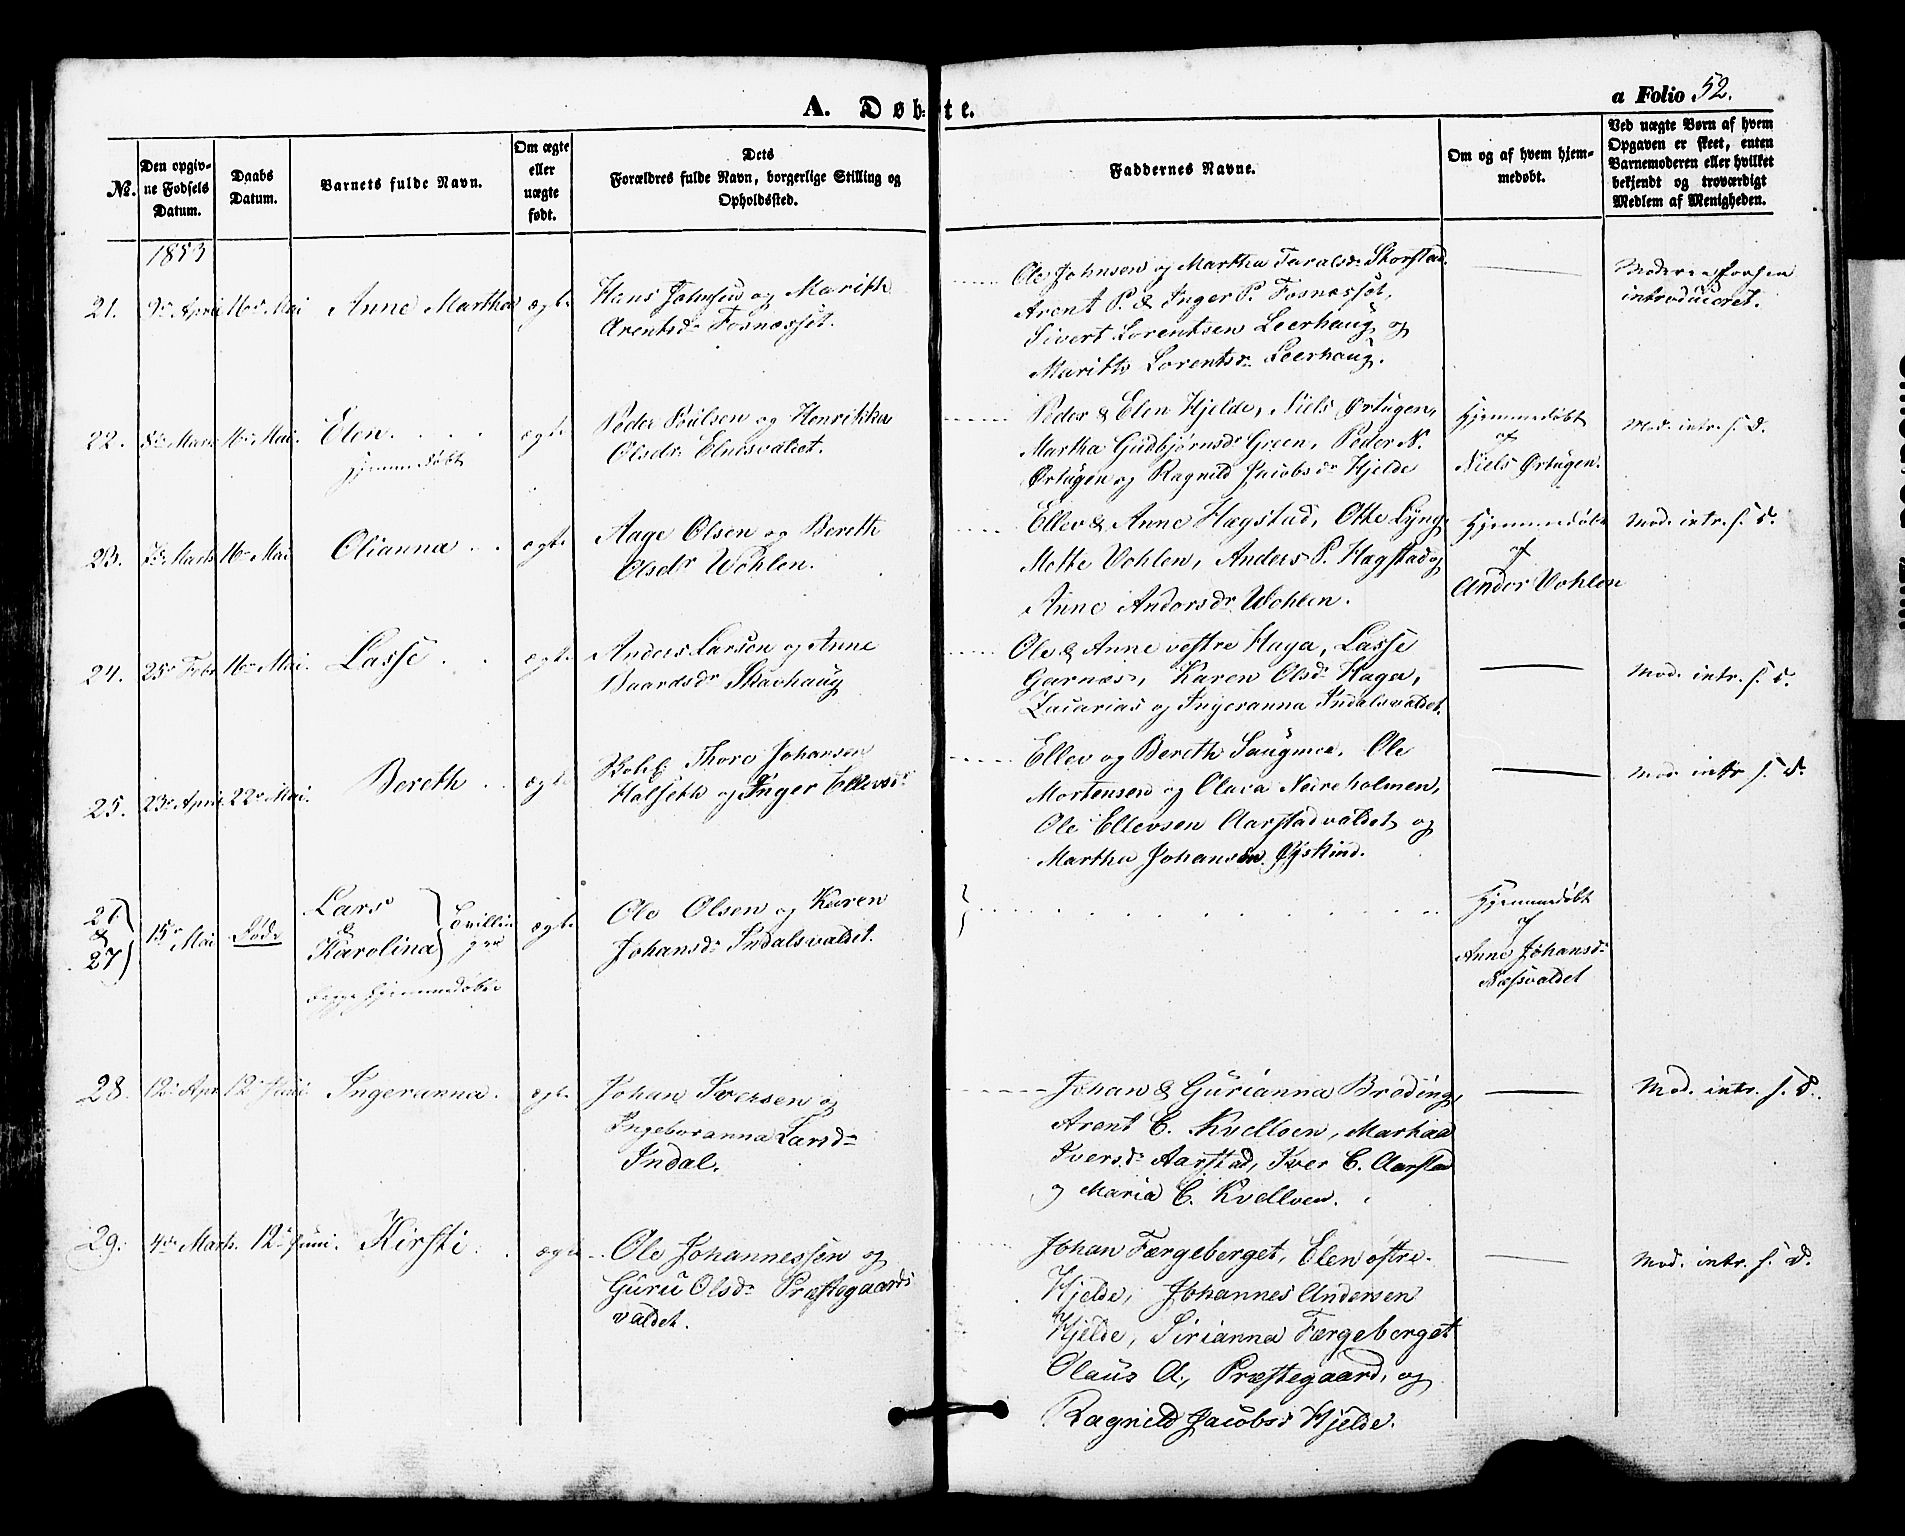 A. Døbte.
a Folio 52.
No.
Den opgivne Fødsels Datum.
Daabs Datum.
Barnets fulde Navn.
Om ægte eller uægte født.
Dets Forældres fulde Navn, borgerlige Stilling og Opholdssted.
Faddernes Navne.
Om og af hvem hjemmedøbt.
Ved uægte Børn af hvem Opgaven er skeet, enten Barnemoderen eller hvilket bekjendt og troværdigt Medlem af Menigheden.
1853
21. 9de April 16de Mai Anne Martha ægte
Hans Johnsen og Marith
Arentsdr Fosnæsset.
Ole Johnsen og Martha Taralsdr Storstad.
Arent P. & Inger P. Fosnæsset,
Sivert Lorentsen Leerhaug og
Marith Lorentsdr Leerhaug.
Moderen
introduceret.
22. 8de Marts 16de Mai. Elen. ægte
hjemmedøbt
Peder Poulsen og Henrikka
Olsdr Elnesvaldet.
Peder & Elen Hjelde, Niels Ørtugen,
Martha Gudbjørnsdr Green, Peder N.
Ørtugen og Ragnild Jacobsdr Hjelde
Hjemmedøbt
af
Niels Ørtugen.
Mod. intr. s. d.
23. 7de Marts 16de Mai Olianna ægte
Aage Olsen og Bereth
Olsdr Wohlen.
Ellev & Anne Hægstad, Otte Lyng,
Mette Vohlen, Anders P. Hagstad og
Anne Andorsdr Wohlen.
Hjemmedøbt
af
Andor Vohlen
Mod. intr. s. d.
24. 25de Febr 16de Mai. Lasse ægte
Anders Larsen og Anne
Baardsdr Skavhaug
Ole & Anne vestre Haga, Lasse
Garnæs, Karen Olsdr Haga,
Zacarias og Ingeranna Indalsvaldet.
Mod. intr. s. d.
25. 23de April 22de Mai. Bereth ægte
Thore Johansen
Halseth og Inger Ellevsdr
Ellev og Bereth Saugmoe, Ole
Mortensen og Olava Neireholmen,
Ole Ellevsen Aarstadvaldet og
Martha Johansen
Mod. intr. s. d.
26 & 27 15de Mai Død. Lars & Karolina Tvillinger ægte
begge hjemmedøbte
Ole Olsen og Karen
Johansdr Indalsvaldet.
Hjemmedøbt
af
Anne Johansdr
Næssvaldet
28. 12te Apr 12te Juni. Ingeranna. ægte
Johan Iversen og
Ingeboranna Larsdr
Indal.
Johan & Gurianna Brøding,
Arent C. Kvelloen, Marthaa
Iversdr Aarstad, Iver C. Aarstad
og Maria C. Kvelloen.
Mod. intr. s. d.
29. 4de Marts. 12te Juni. Kirsti. ægte
Ole Johannessen og
Guru Olsdr Præstegaards
valdet.
Johan Færgeberget, Elen østre
Hjelde, Johannes Andersen
Hjelde, Sirianna Færgeberget
Olaus A. Præstegaard, og
Ragnild Jacobsdr Hjelde.
Mod. intr. s. d.